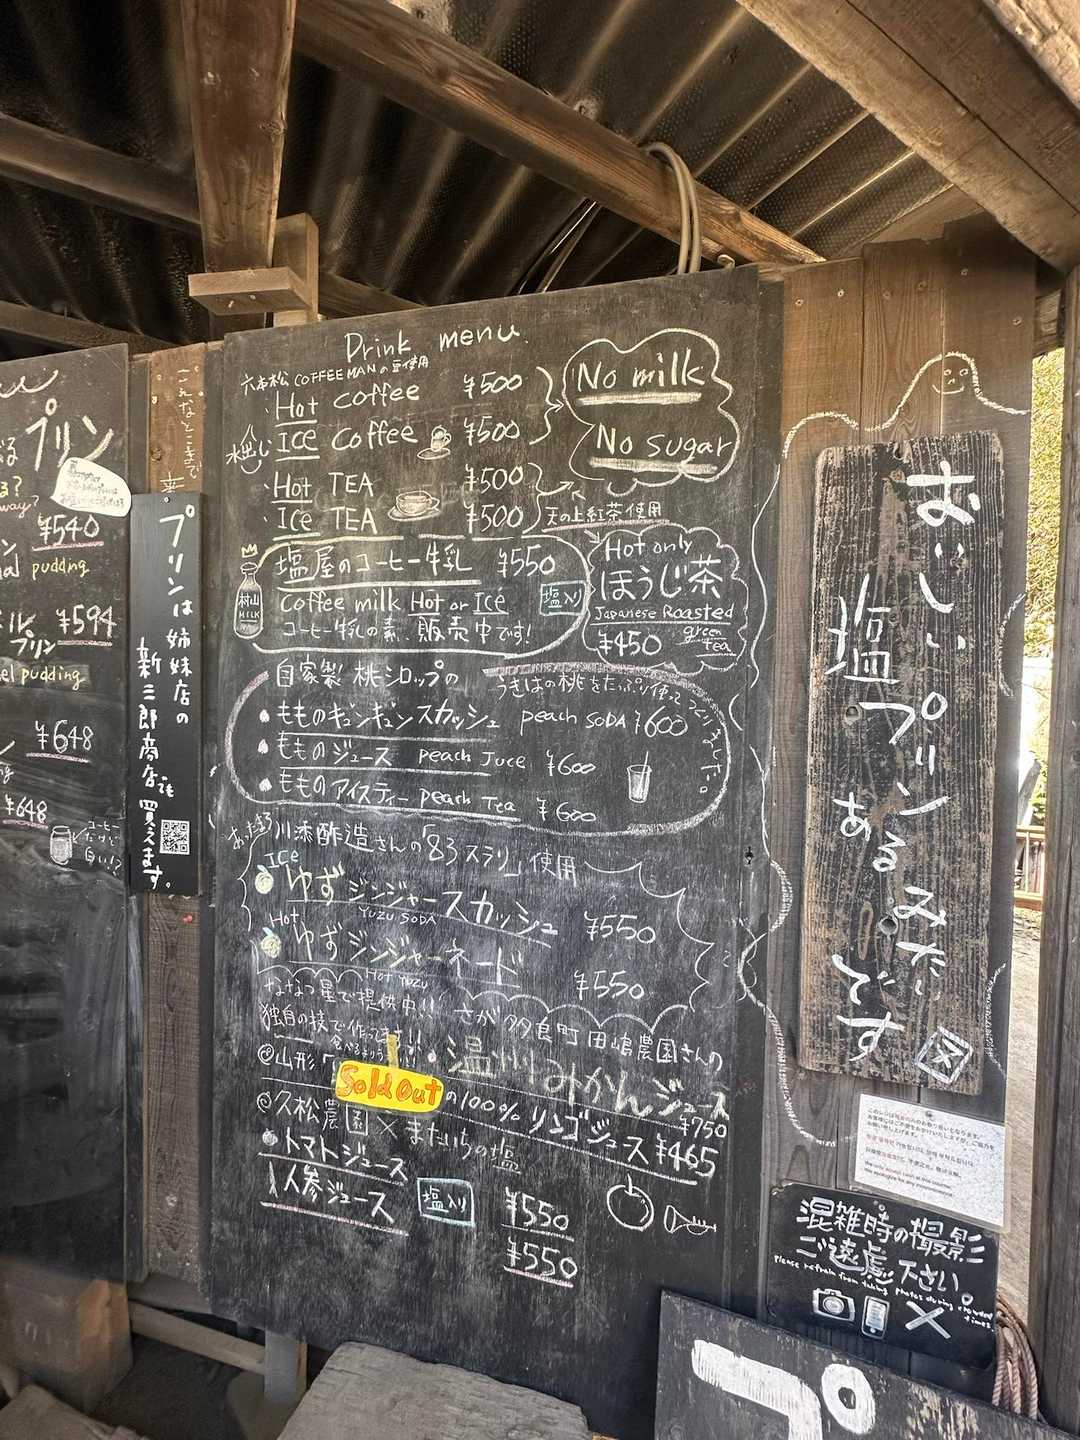 プリン
¥540
pudding
¥594
プリン
pudding
¥648
¥648
コーヒー
だけど
白い!?
こんなところまで
プリンは姉妹店の
新三郎商店でも買えます。
Drink menu
六本松 COFFEE MANの豆使用
・Hot coffee ¥500
水出し
・ICE coffee ¥500
No milk
No sugar
・Hot TEA ¥500
・ICE TEA ¥500
天の上紅茶使用
塩屋のコーヒー牛乳 ¥550
村山
MILK
coffee milk Hot or Ice
塩入り
コーヒー牛乳の素、販売中です!
Hot only
ほうじ茶
Japanese Roasted
green
tea
¥450
自家製 桃シロップの
うきはの桃をたっぷり使ってつくりました。
もものギュンギュンスカッシュ peach SODA ¥600
もものジュース peach Juce ¥600
もものアイスティー peach Tea ¥600
あったまる
川添酢造さんの「83スラリ」使用
ICe
ゆずジンジャースカッシュ ¥550
YUZU SODA
Hot
ゆずジンジャーネード ¥550
Hot YUZU
ななつ星で提供中!!
独自の技で作ってます!!
さが 多良町 田嶋農園さんの
・温州みかんジュース
¥750
山形
Sold Out
の100%リンゴジュース ¥465
久松農園×またいちの塩
トマトジュース
人参ジュース
塩入り
¥550
¥550
おいしい
塩プリン
あるみたい
です
混雑時の撮影
ご遠慮下さい。
Please refrain from taking photos during crowded times
プ